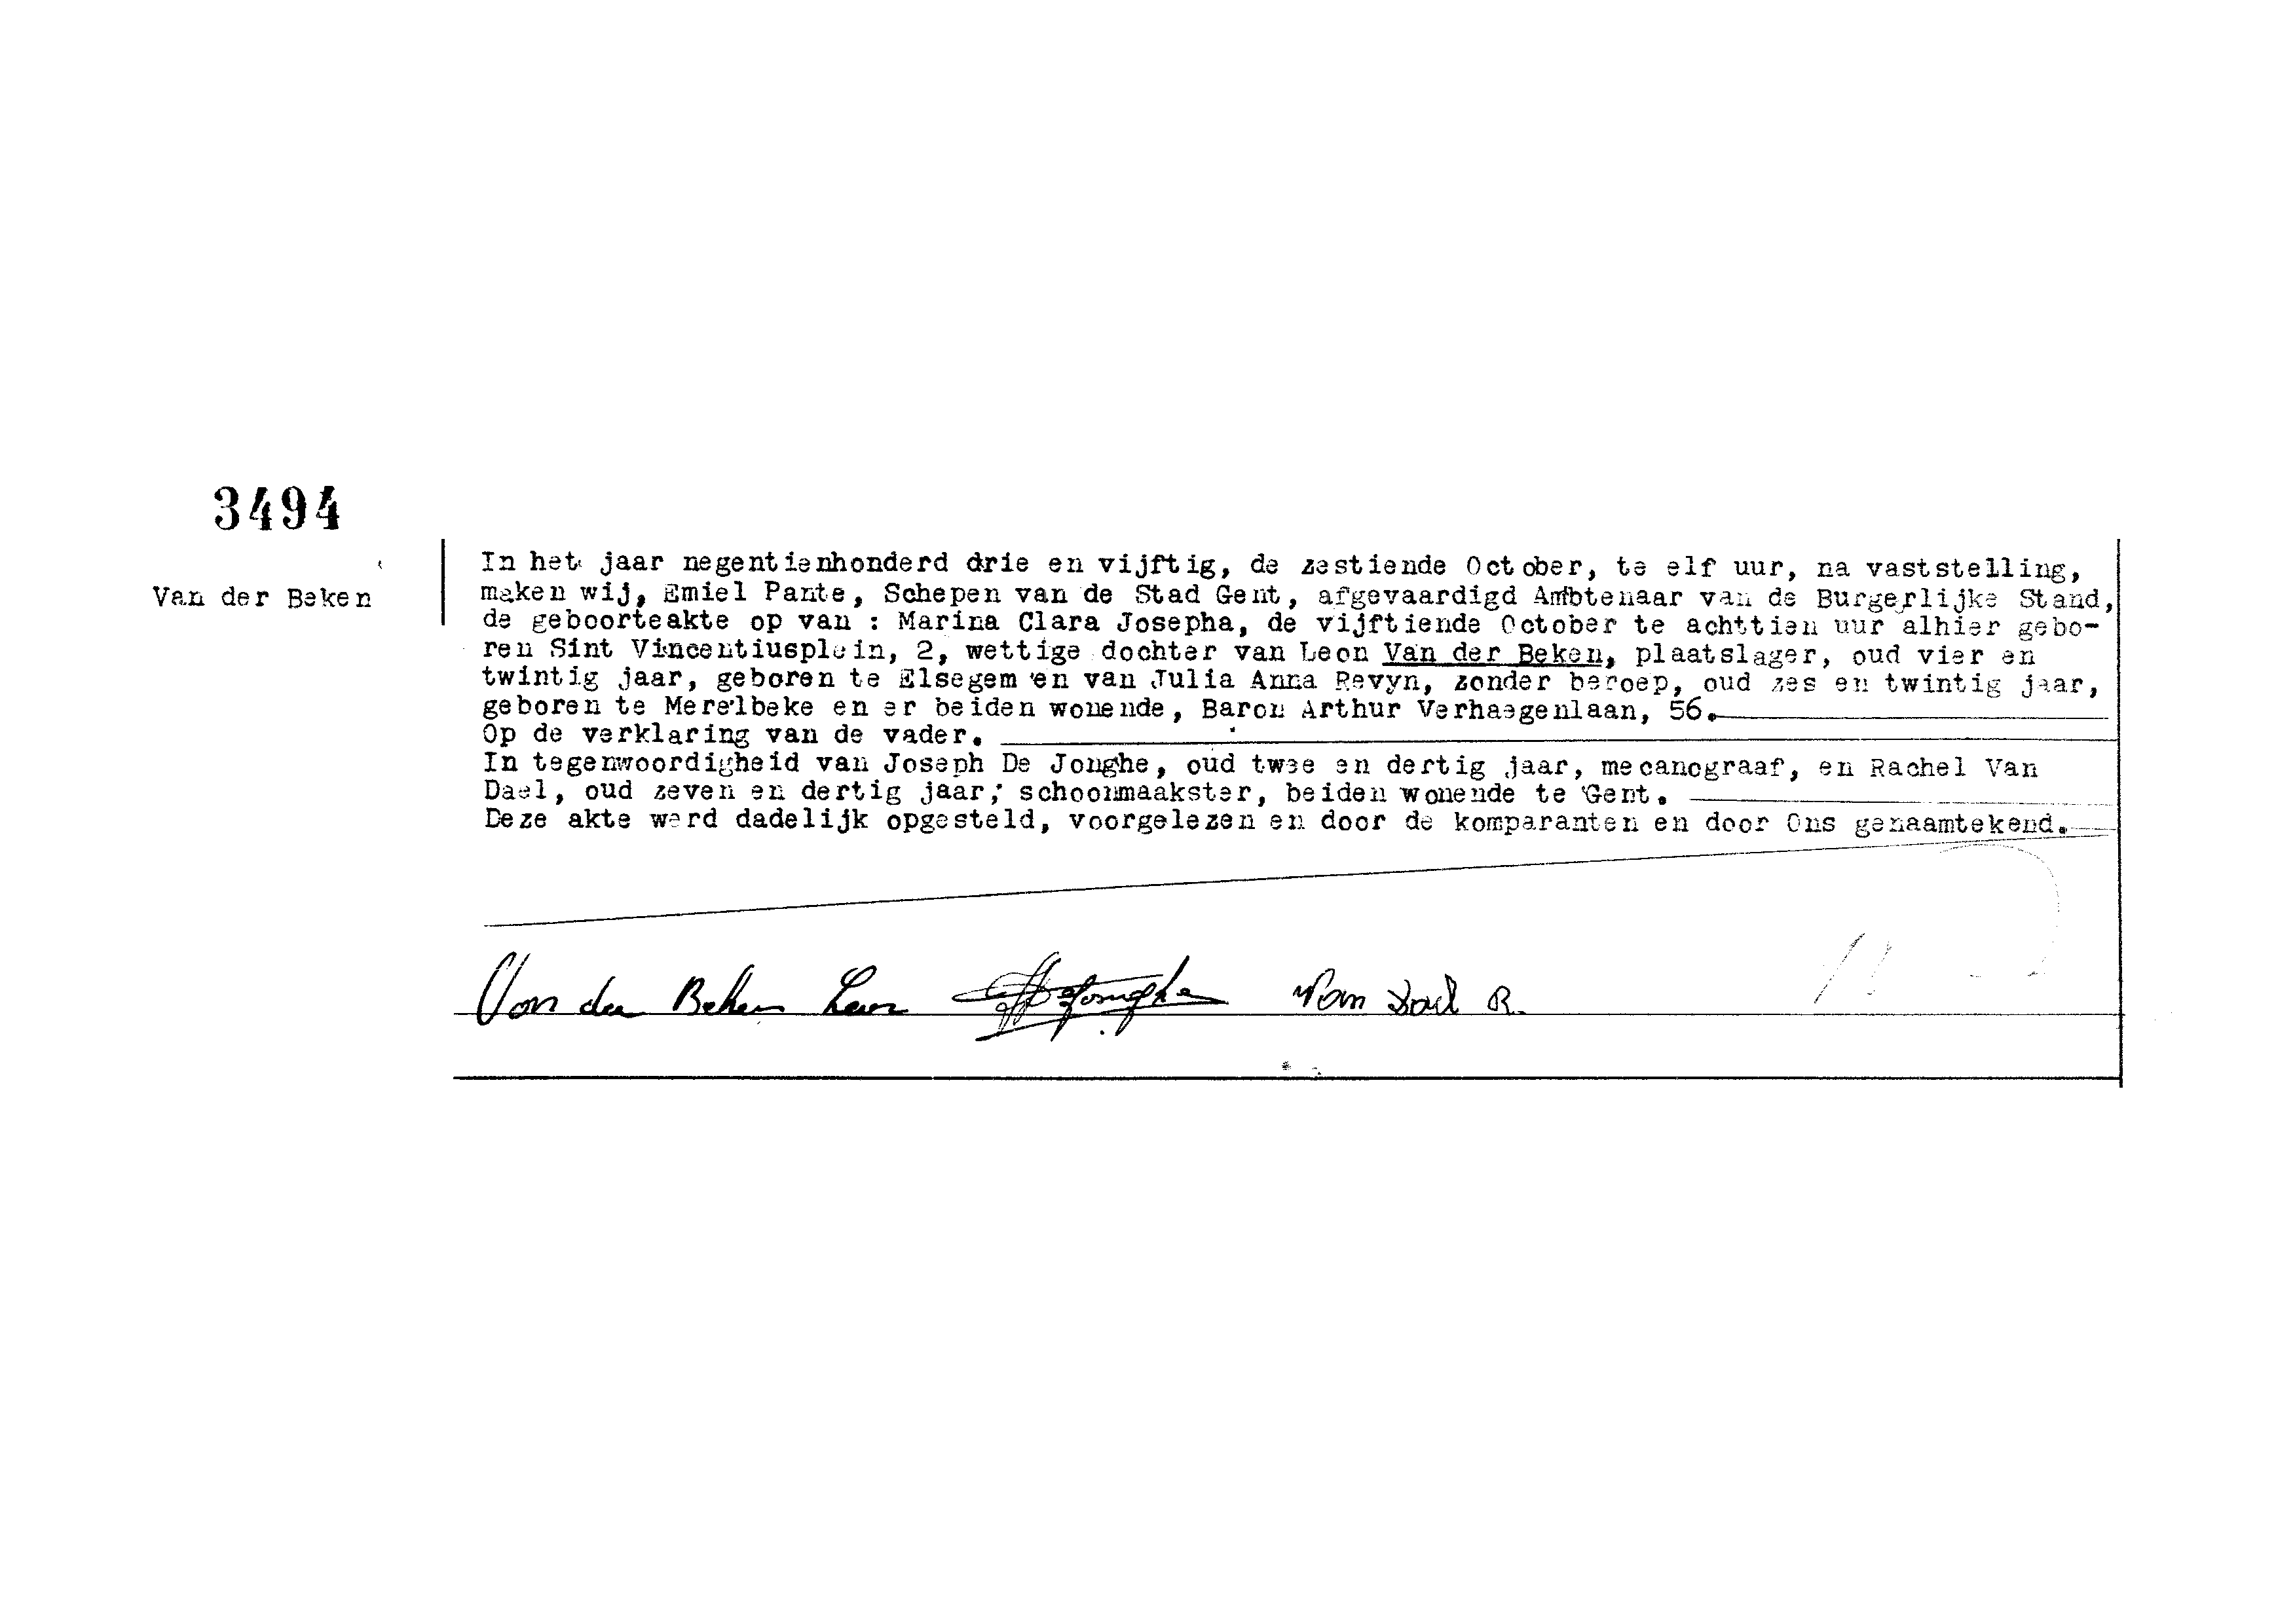 3494
Van der Beken
In het jaar negentienhonderd drie en vijftig, de zestiende October, te elf uur, na vaststelling,
maken wij, Emiel Pante, Schepen van de Stad Gent, afgevaardigd Ambtenaar van de Burgerlijke Stand,
de geboorteakte op van : Marina Clara Josepha, de vijftiende October te achttien uur alhier gebo-
ren Sint Vincentiusplein, 2, wettige dochter van Leon Van der Beken, plaatslager, oud vier en
twintig jaar, geboren te Elsegem en van Julia Anna Revyn, zonder beroep, oud zes en twintig jaar,
geboren te Merelbeke en er beiden wonende, Baron Arthur Verhaegenlaan, 56.
Op de verklaring van de vader.
In tegenwoordigheid van Joseph De Jonghe, oud twee en dertig jaar, mecanograaf, en Rachel Van
Dael, oud zeven en dertig jaar, schoonmaakster, beiden wonende te Gent.
Deze akte werd dadelijk opgesteld, voorgelezen en door de komparanten en door Ons genaamtekend.
Van der Beken Leon DeJonghe Van Dael R.